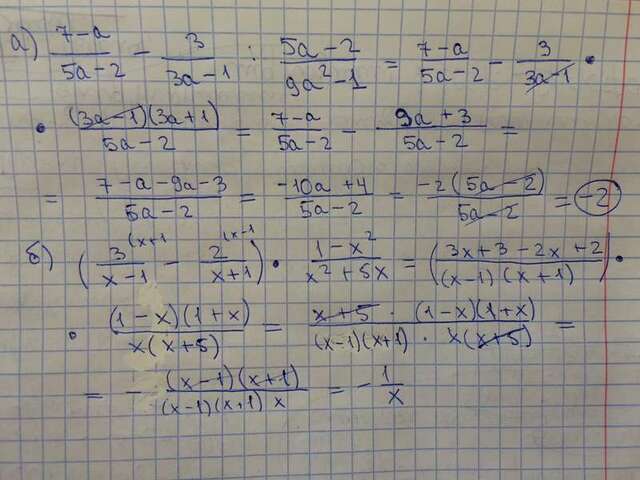 а) (7-a)/(5a-2) - 3/(3a-1) : (5a-2)/(9a²-1) = (7-a)/(5a-2) - 3/(3a-1) •
• (3a-1)(3a+1)/(5a-2) = (7-a)/(5a-2) - (9a+3)/(5a-2) =
= (7-a-9a-3)/(5a-2) = (-10a+4)/(5a-2) = -2(5a-2)/(5a-2) = -2
б) (3/(x-1) (x+1 - 2/(x+1) (x-1) • (1-x²)/(x²+5x) = ((3x+3-2x+2)/((x-1)(x+1))) •
• (1-x)(1+x)/(x(x+5)) = (x+5 • (1-x)(1+x))/((x-1)(x+1) • x(x+5)) =
= - (x-1)(x+1)/((x-1)(x+1)x) = - 1/x